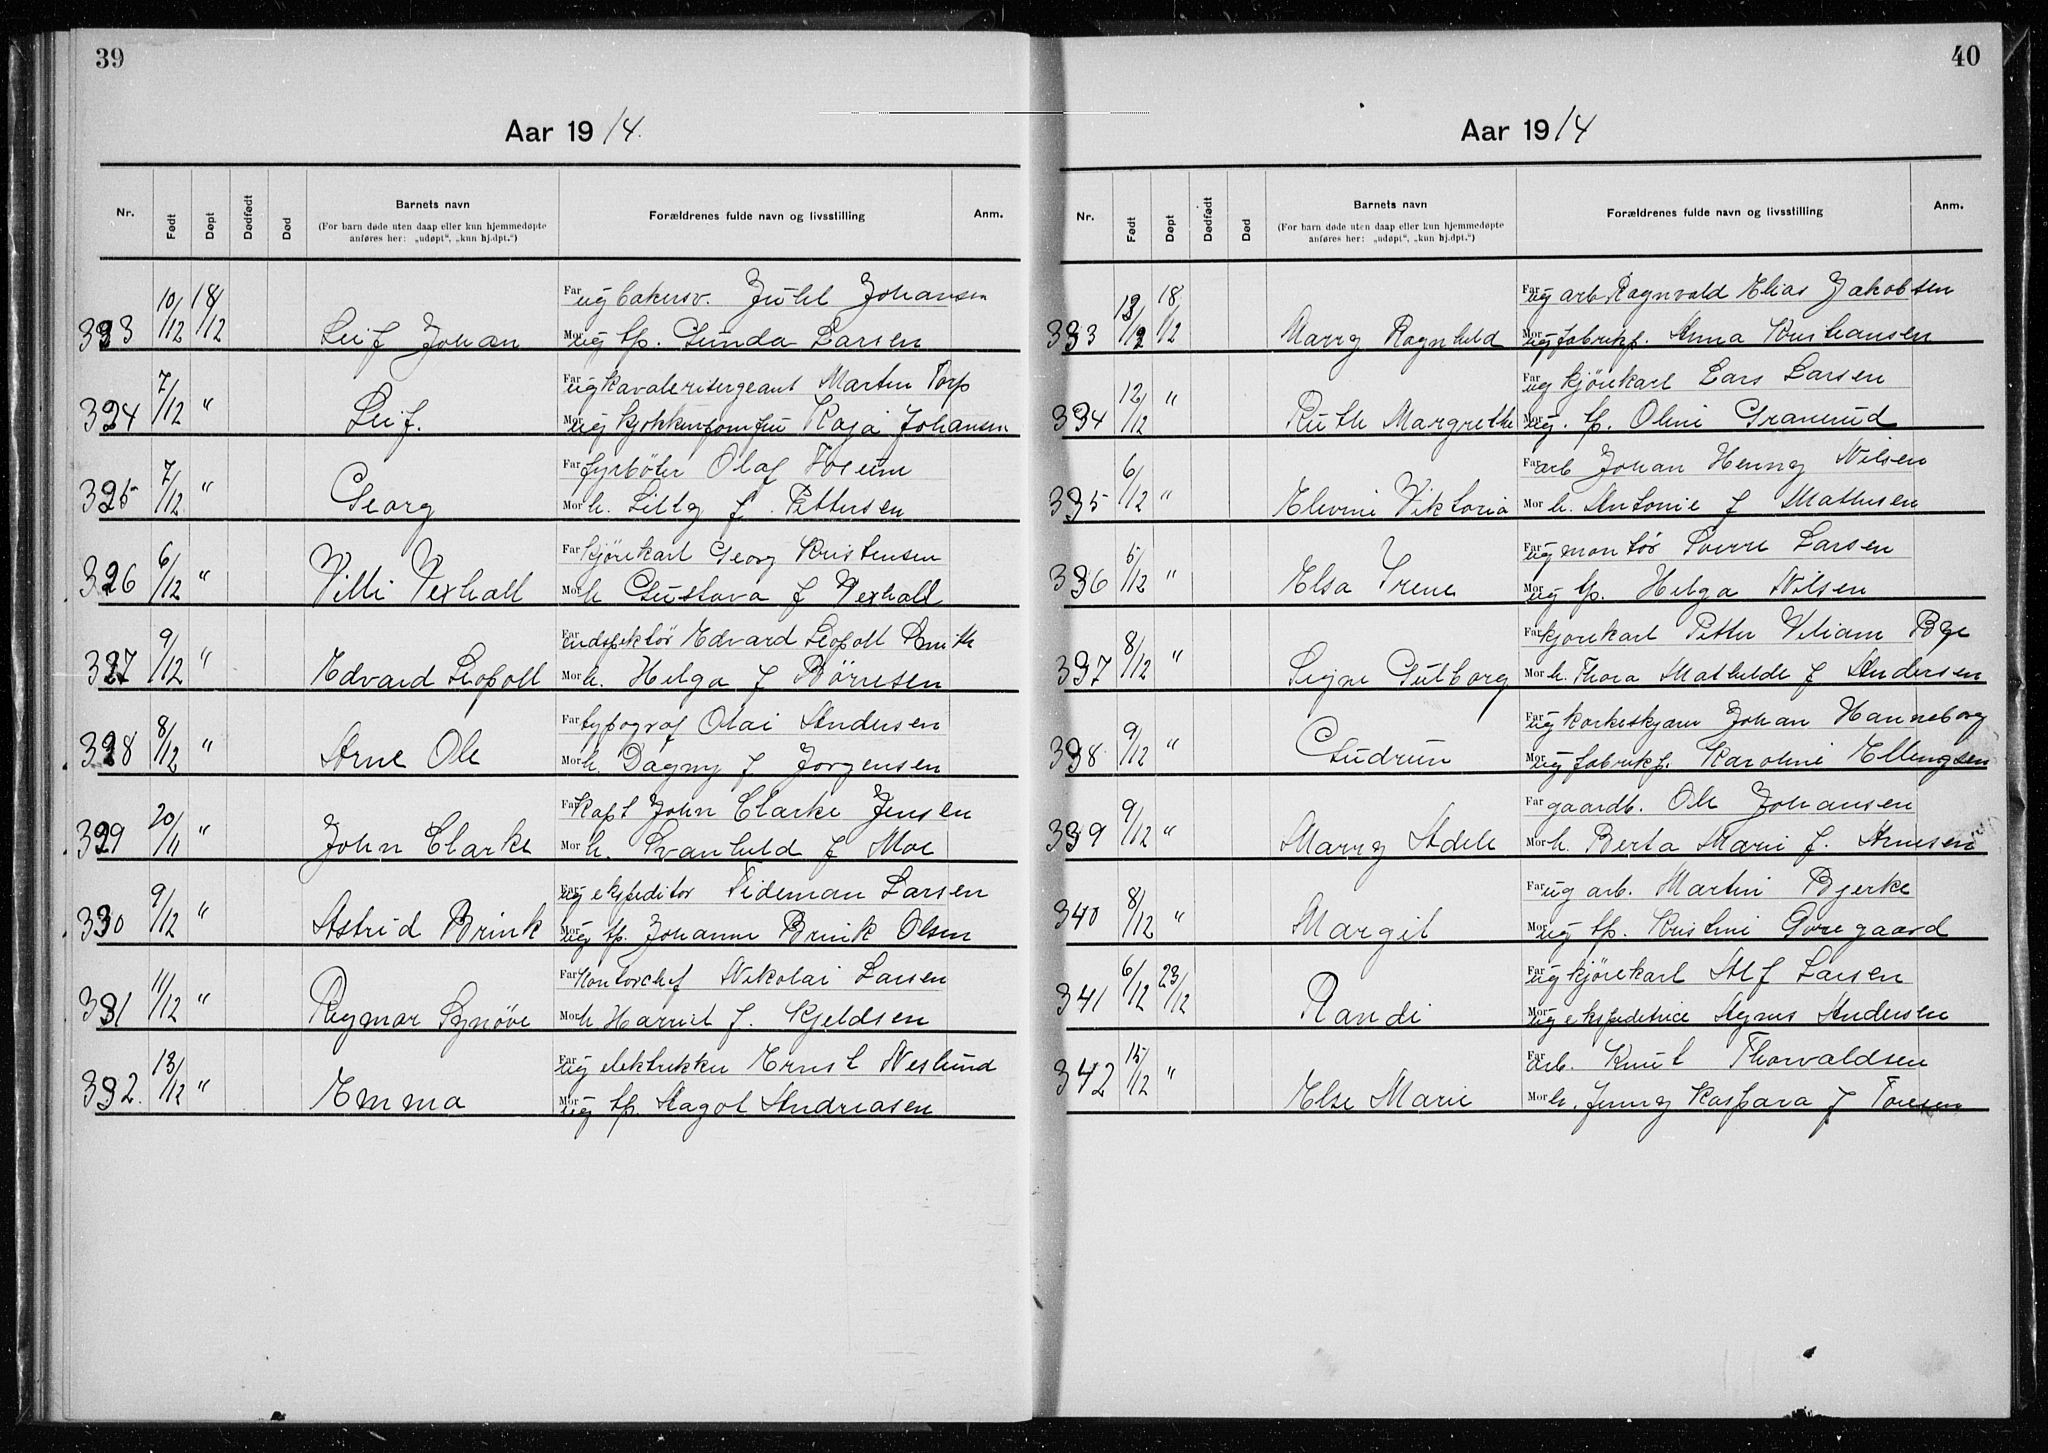 39
Aar 1914.
Nr. Født Døpt Dødfødt Død Barnets navn Forældrenes fulde navn og livsstilling Anm.
(For barn døde uten daap eller kun hjemmedøpte
anføres her: „udøpt", „kun hj.dpt.")
10/12 18/12 Far ug bakersv. Juhl Johansen
323 Leif Johan Mor ug tp. Gunda Larsen
7/12 " Far ug kavalerisergeant Martin Torp
324 Leif. Mor ug kjøkkenjomfru Kaja Johansen
7/12 " Far fyrbøter Olaf
325 Georg Mor h. Lilly f. Pettersen
6/12 " Far kjørekarl Georg Kristensen
326 Villi Vexhall Mor h Gustava f Vexhall
9/12 " Far Edvard Leopolt Smith
327 Edvard Leopolt Mor h. Helga f Børresen
8/12 " Far typograf Olai Andersen
328 Arne Ole Mor h. Dagny f Jorgensen
20/11 " Far Kapt John Clarke Jensen
329 John Clarke Mor h. Svanhild f Moe
9/12 " Far ug ekspeditør Tideman Larsen
330 Astrid Brink Mor ug tp. Johanne Brink Olsen
11/12 " Far Kontorchef Nikolai Larsen
331 Regmor Synøve Mor h Harriet f. Kjeldsen
13/12 " Far ug elektriker Ernst Neslund
332. Emma Mor ug tp Aagot Andreasen
40
Aar 1914
Nr. Født Døpt Dødfødt Død Barnets navn Forældrenes fulde navn og livsstilling Anm.
(For barn døde uten daap eller kun hjemmedøpte
anføres her: „udøpt", „kun hj.dpt.")
13/12 18/12 Far ug arb Ragnvald Elias Jakobsen
333 Marry Ragnhild Mor ug fabrikp. Anna Kristiansen
12/12 " Far ug kjørekarl Lars Larsen
334 Ruth Margrethe Mor ug. tp. Oline Granerud
6/12 " Far arb Johan Henry Nilsen
335 Elevine Viktoria Mor h. Antonie f Mathisen
5/12 " Far ug montør Sverre Larsen
336 Elsa Irene Mor ug tp. Helga Nilsen
8/12 " Far kjørekarl Petter Viliam Bye
337 Signe Gulborg Mor h. Thora Mathilde f Andersen
9/12 " Far ug korkeskjærer Johan Hanneborg
338 Gudrun Mor ug fabrikp. Karoline Ellingsen
9/12 " Far gaardb. Ole Johansen
339 Marry Adele Mor h. Berta Marie f. Arnesen
8/12 " Far ug arb. Martin Bjerke
340 Margit Mor ug tp. Kristine Overgaard
6/12 23/12 Far ug kjørekarl Alf Larsen
341 Randi Mor ug ekspeditrice Agnes Andersen
15/12 " Far arb. Knut Thorvaldsen
342 Else Marie Mor h. Jenny Kaspara f Toresen